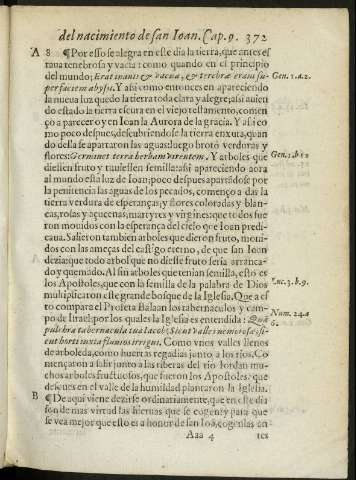 del nacimiento de san Ioan. Cap. 9. 372
A 8 ¶ Por esso se alegra en este dia la tierra, que antes es
taua tenebrosa y vacia: como quando en el principio
del mundo; Erat inanis & vacua, & tenebræ erant su- Gen. 1. a. 2.
per faciem abyssi. Y assi como entonces en apareciendo
la nueua luz quedo la tierra toda clara y alegre; assi auien
do estado la tierra escura en el viejo testamento, comen
ço a parecer oy en Ioan la Aurora de la gracia. Y assi co
mo poco despues, descubriendose la tierra enxuta, quan
do della se apartaron las aguas: luego brotò verduras y
flores: Germinet terra herbam virentem. Y arboles que Gen. 1. b. 12
diessen fruto y tuuiessen semilla: assi apareciendo aora
al mundo esta luz de Ioan; poco despues apartãdose por
la penitencia las aguas de los pecados, començo a dar la
tierra verdura de esperanças; y flores coloradas y blan-
cas, rosas y açucenas, martyres y virgines: que todos fue
ron mouidos con la esperança del cielo que Ioan predi-
caua. Salieron tambien arboles que dieron fruto, moui-
dos con las ameças del castigo eterno, de que san Ioan
dezia: que todo arbol que no diesse fruto seria arranca- Luc. 3. b. 9.
do y quemado. Al fin arboles que tenian semilla, esto es
los Apostoles, que con la semilla de la palabra de Dios
multiplicaron este grande bosque de la Iglesia. Que a es
to compara el Profeta Balaan los tabernaculos y cam-
po de Israel: por los quales la Iglesia es entendida: Quã Num. 24. a
pulchra tabernacula tua Iacob; Sicut valles nemorosæ, si- 6.
cut horti iuxta fluuios irrigui. Como vnos valles llenos
de arboleda, como huertas regadias junto a los rios. Co
mençaron a salir junto a las riberas del rio Iordan mu-
chos arboles fructuosos, que fueron los Apostoles: que
despues en el valle de la humildad plantaron la Iglesia.
B ¶ De aqui viene dezirse ordinariamente, que en este dia
son de mas virtud las hieruas que se cogen: y para que
se vea mejor que esto es a honor de san Ioã, cogenlas en
Aaa 4 tes